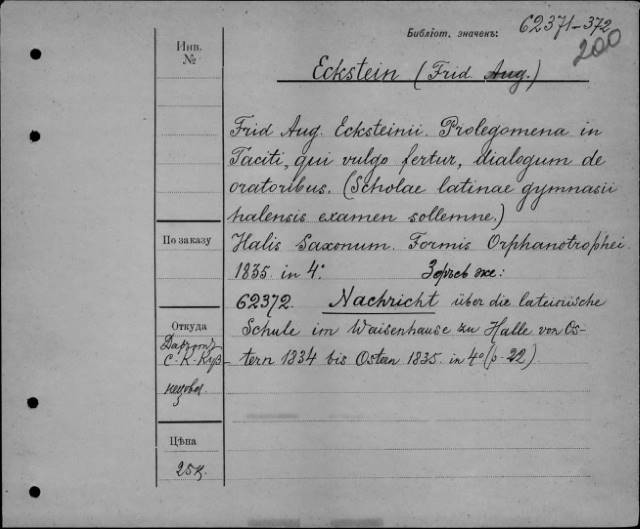 Библіот. значенъ: 62371-372
200
Инв.
№
Eckstein (Frid Aug.)
Frid Aug. Ecksteinii. Prolegomena in
Taciti, qui vulgo fertur, dialogum de
oratoribus. (Scholae latinae gymnasii
halensis examen sollemne.)
По заказу
Halis Saxonum. Formis Orphanotrophei.
1835. in 4°.
62372. Nachricht über die lateinische
Откуда
Schule im Waisenhause zu Halle von Os-
tern 1834 bis Ostern 1835. in 4° (p. 22)
С. К. Куз-
нецова
Цѣна
25к.